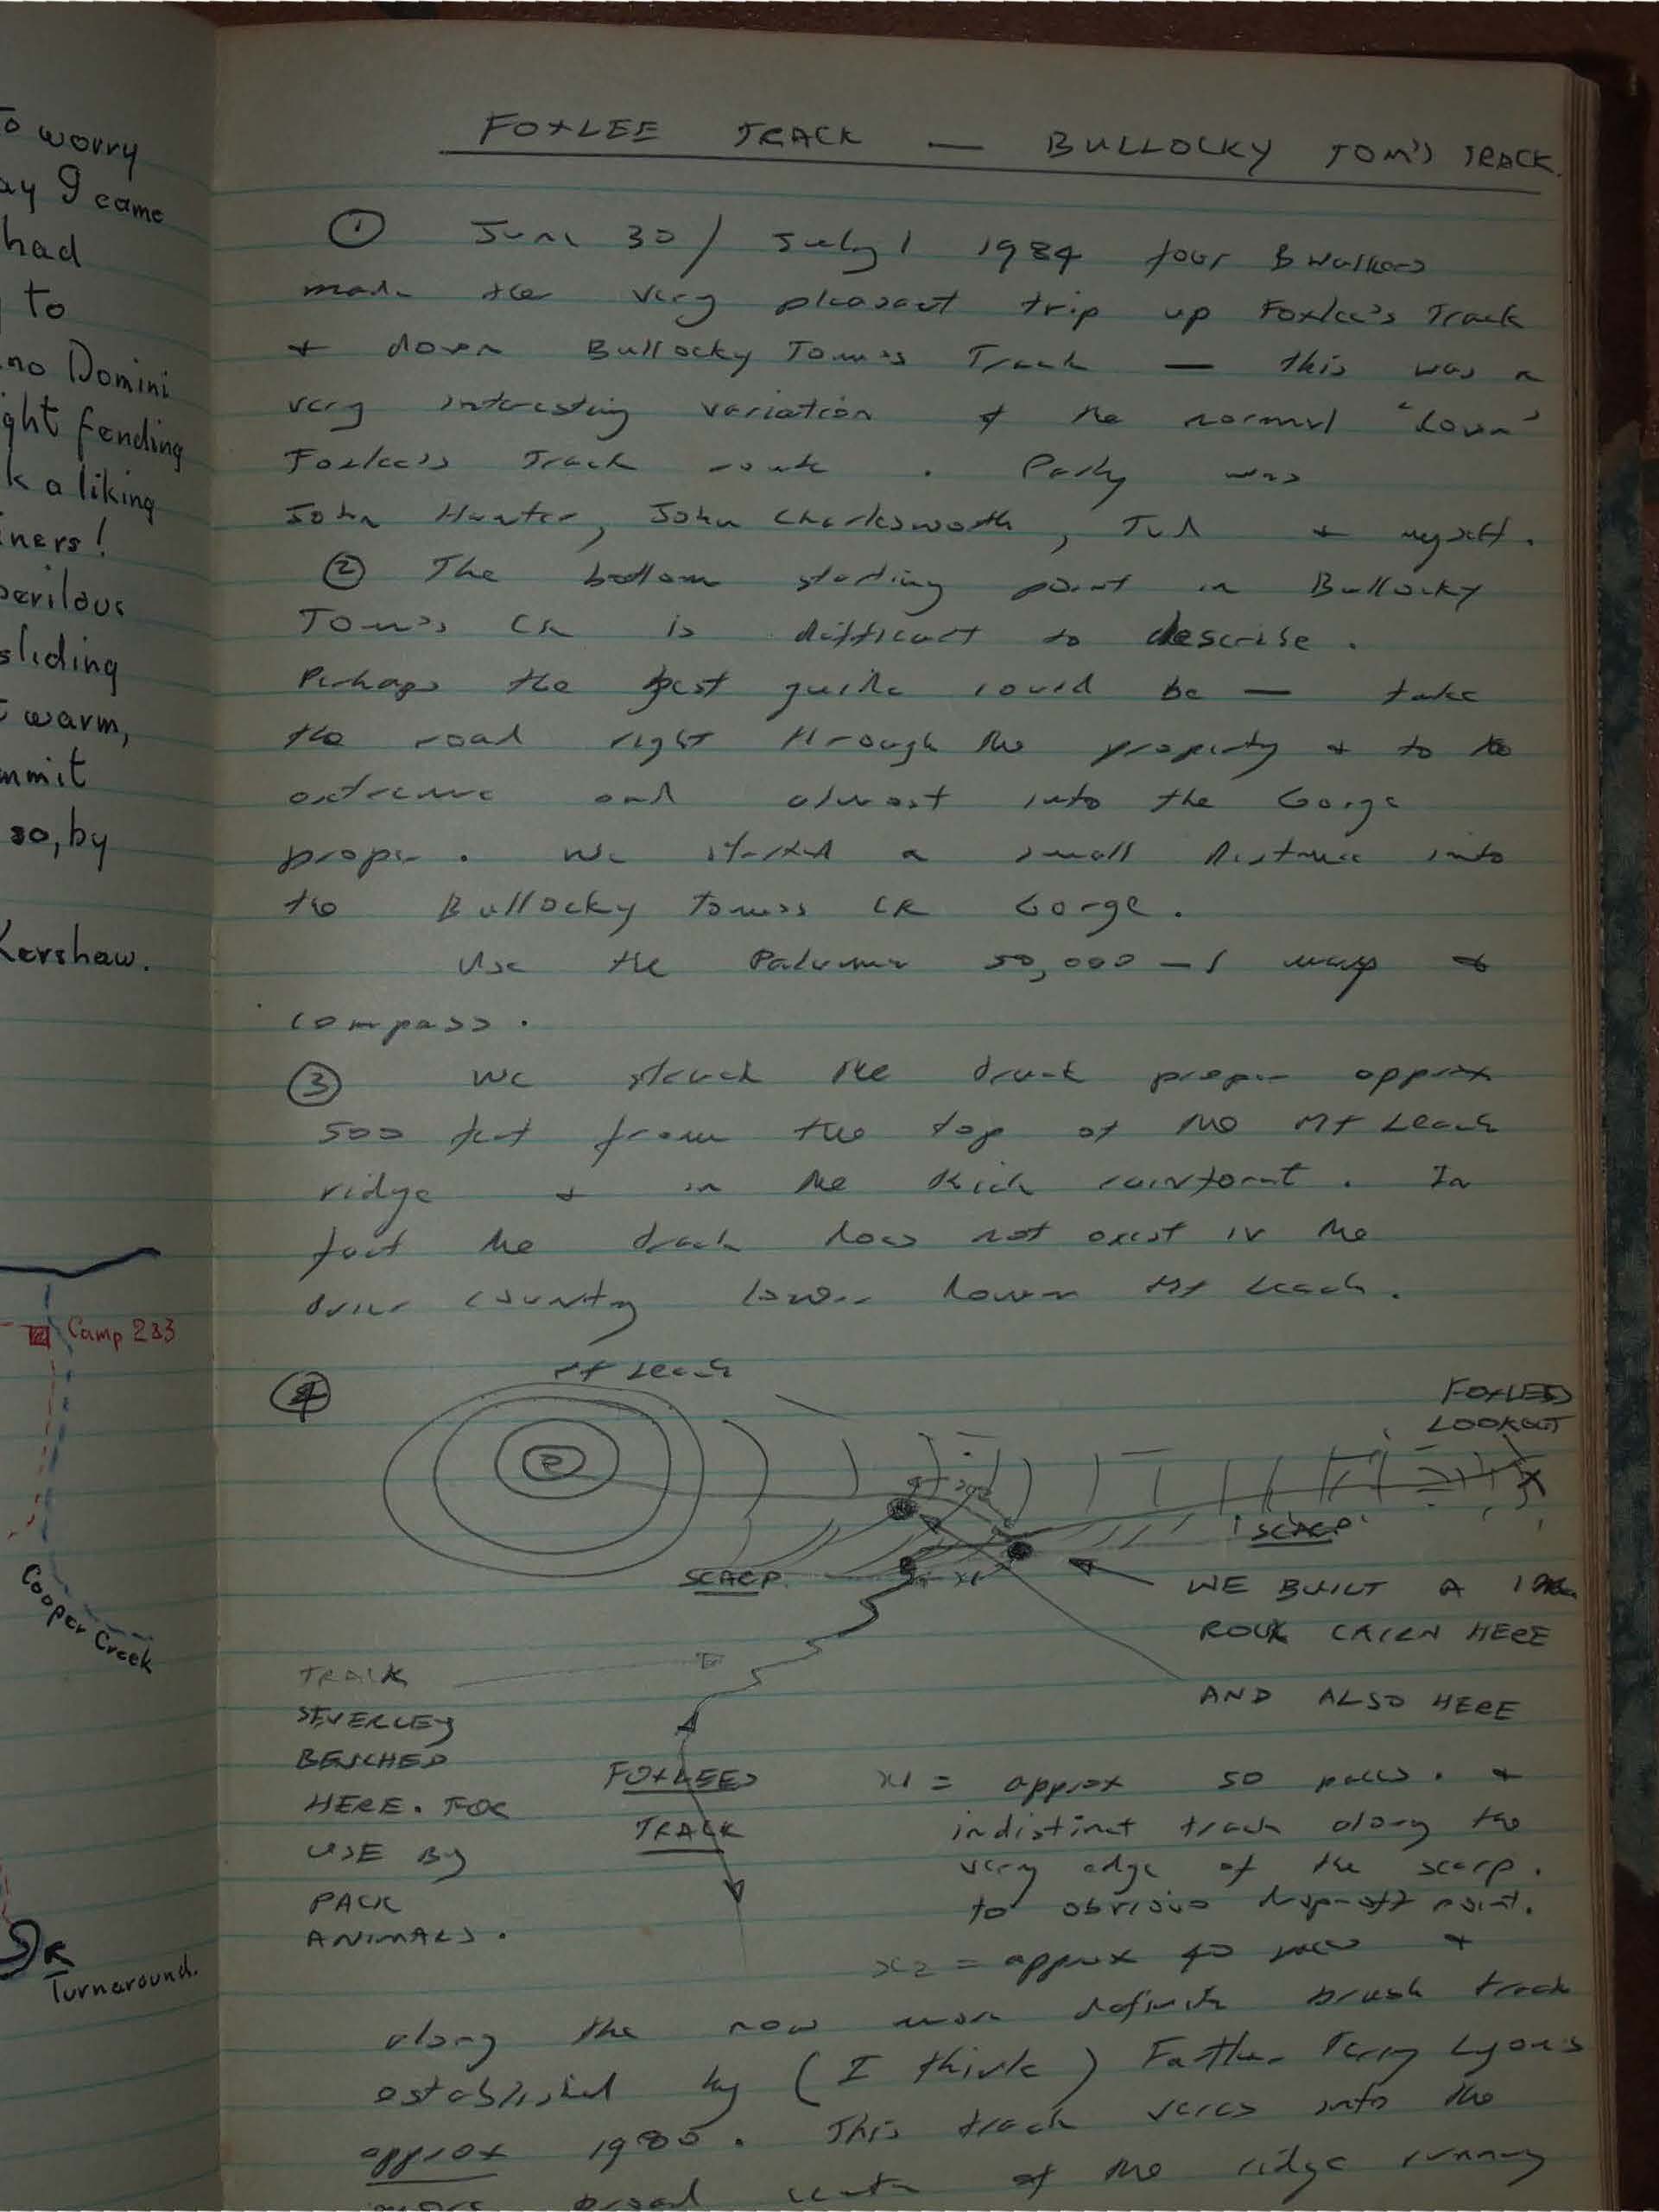 To worry
ay I came
had
to
no Domini
ght fending
k a liking
ners!
perilous
sliding
warm,
mmit
so, by
Kershaw.
Camp 233
Cooper Creek
Turnaround.
FOXLEE TRACK — BULLOCKY TOM'S TRACK.
① June 30/ July 1 1984 four B Walkers
made the very pleasant trip up Foxlee's Track
+ down Bullocky Tom's Track — this was a
very interesting variation of the normal "down"
Foxlee's Track route. Party was
John Hunter, John Charlesworth, Ted + myself.
② The bottom starting point in Bullocky
Tom's CK is difficult to describe.
Perhaps the best guide could be — take
the road right through the property + to the
extreme end almost into the Gorge
proper. We started a small distance into
the Bullocky Tom's CK Gorge.
Use the Paluma 50,000 - 1 map +
compass.
③ We struck the track proper approx
500 feet from the top of the Mt Leach
ridge + in the thick rainforest. In
fact the track does not exist in the
drier country lower down Mt Leach.
④ Mt Leach
FOXLEES
LOOKOUT
x2
'SCARP'
SCARP
x1
WE BUILT A
ROCK CAIRN HERE
AND ALSO HERE
TRACK
SEVERLEY
BENCHED
HERE. FOR
USE BY
PACK
ANIMALS.
FOXLEES
TRACK
x1 = approx 50 paces. +
indistinct track along the
very edge of the scarp.
to obvious drop-off point.
x2 = approx 40 paces +
along the now more definite brush track
established by (I think) Father Terry Lyons
approx 1980. This track veres into the
more broad of the ridge running